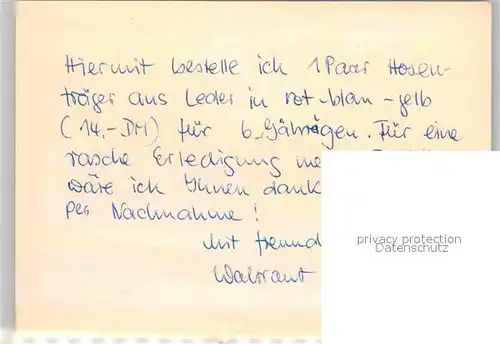 Hiermit bestelle ich 1 Paar Hosen-
träger aus Leder in rot-blau-gelb
(14,- DM) für 6-jährigen. Für eine
rasche Erledigung
wäre ich Ihnen dank
per Nachnahme!
Mit freund
Waltraut
privacy protection
Datenschutz